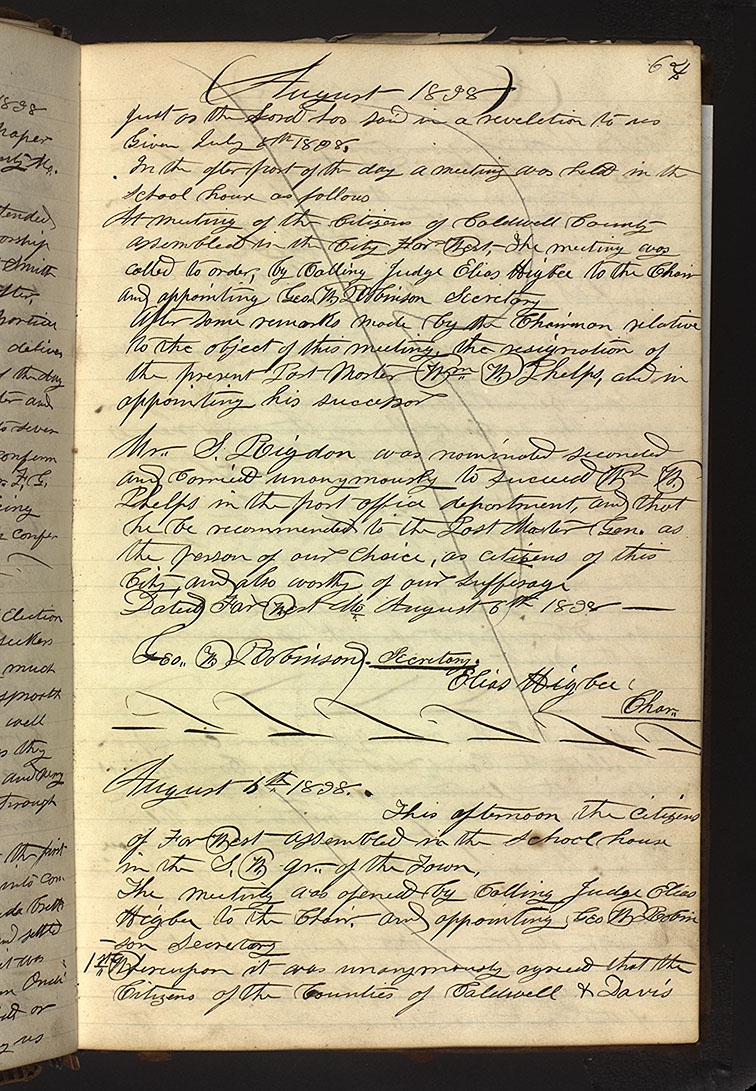 64
(August 1838)
just as the Lord has said in a revelation to us
Given July 8th 1838.
In the after part of the day a meeting was held in the
school house as follows
At meeting of the Citizens of Caldwell County
assembled in the City Far West, The meeting was
called to order, by Calling Judge Elias Higbee to the Chair
and appointing Geo. W. Robinson Secretary
After some remarks made by the Chairman relative
to the object of this meeting, the resignation of
the present Post Master Wm W. Phelps, and in
appointing his successor
Mr. S. Rigdon was nominated seconded
and carried unanymously to succeed Wm W.
Phelps in the post office department, and that
he be recommended to the Post Master Gen. as
the person of our choice, as citizens of this
City, and also worthy of our sufferage
Dated Far West Mo August 6th 1838
Geo. W. Robinson. Secretary.
Elias Higbee
Char..
August 6th 1838.
This afternoon the Citizens
of Far West assembled in the school house
in the S. W. qr.. of the Town,
The meeting was opened by Calling Judge Elias
Higbee to the Chair. and appointing Geo W. Robin
son Secretary
1st Whereupon it was unanymously agreed that the
Citizens of the Counties of Caldwell & Davis
1838
tended
Smith
after,
portion
deliver
of the day
conform
F. G.
confer
Election
seekers
much
well
as they
through
the first
into com
and settled
it was
us